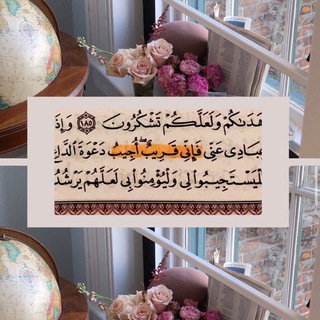 هَدَىٰكُمْ وَلَعَلَّكُمْ تَشْكُرُونَ ١٨٥ وَإِذَا
عِبَادِي عَنِّي فَإِنِّي قَرِيبٌ ۖ أُجِيبُ دَعْوَةَ ٱلدَّاعِ
فَلْيَسْتَجِيبُوا۟ لِي وَلْيُؤْمِنُوا۟ بِي لَعَلَّهُمْ يَرْشُدُ